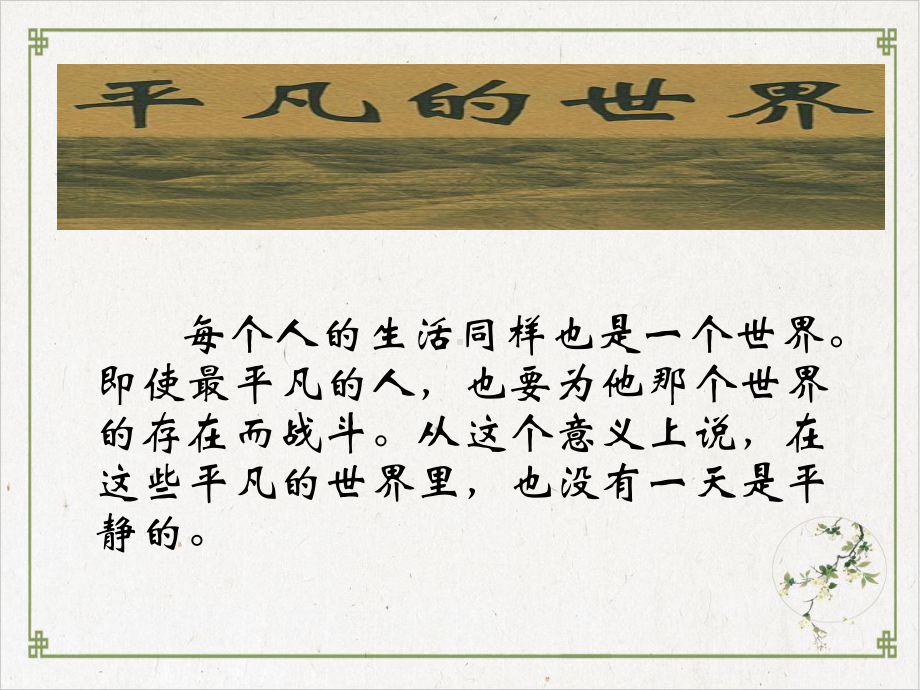 平凡的世界
每个人的生活同样也是一个世界。
即使最平凡的人，也要为他那个世界
的存在而战斗。从这个意义上说，在
这些平凡的世界里，也没有一天是平
静的。